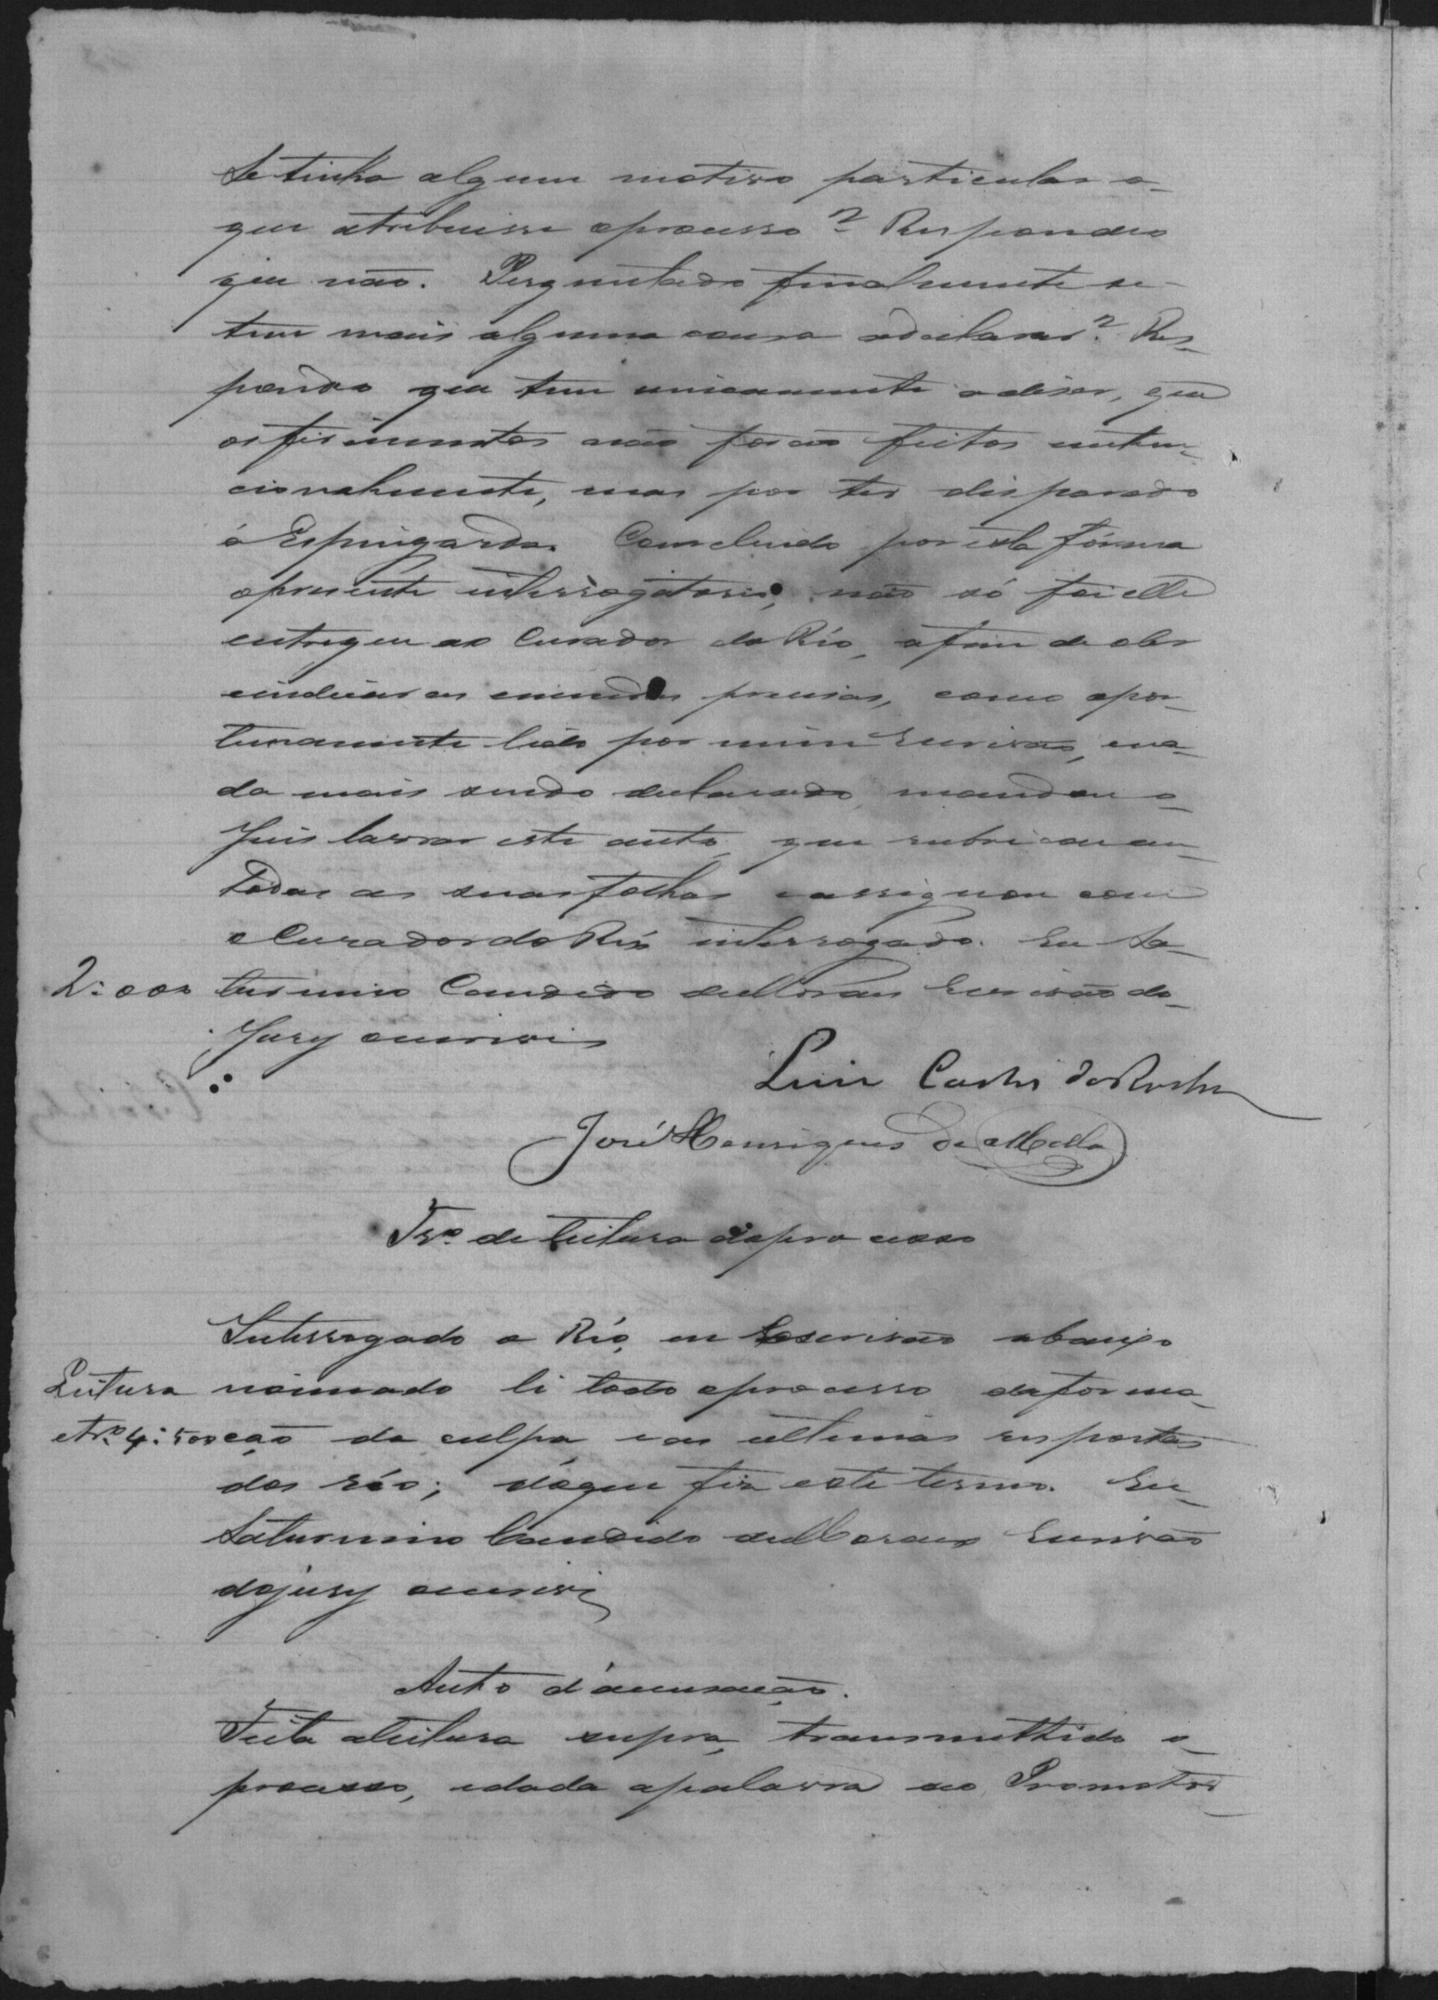 Se tinha algum motivo particular a-
que atribuisse oprocesso? Respondeo
que não. Perguntado finalmente se-
tem mais alguma cousa adeclarar? Res-
pondeo que tem unicamente adizer, que
osferimentos não forão feitos inten-
cionalmente, mas por ter disparado
a Espingarda. Concluido poresta fórma
opresente interrogatorio, não só foi elle
entregue ao Curador do Réo, afim de
as emendas precisas, como opor-
tunamente lido por mim Escrivão, ena-
da mais sendo declarado, mandou o
Juis lavrar este auto, que rubricou em
todas as suas folhas e assignou com
o Curador do Réo interrogado. Eu Sa-
2:000 turnino Candido de Moraes Escrivão do
Jury escrivi
Luiz Carlos da Rocha
José Henriques de Mello
Tr.º de leitura do processo
Interrogado o Réo, eu Escrivão abaixo
Leitura nomeado li todo oprocesso daforma-
eTr.º 4:500 ção da culpa e as ultimas respostas
dos réo; doque fiz este termo. Eu
Saturnino Candido de Moraes Escrivão
dojury escrivi
Auto d'accusação.
Feita aleitura supra, transmettido o
processo, edada apalavra ao Promotor